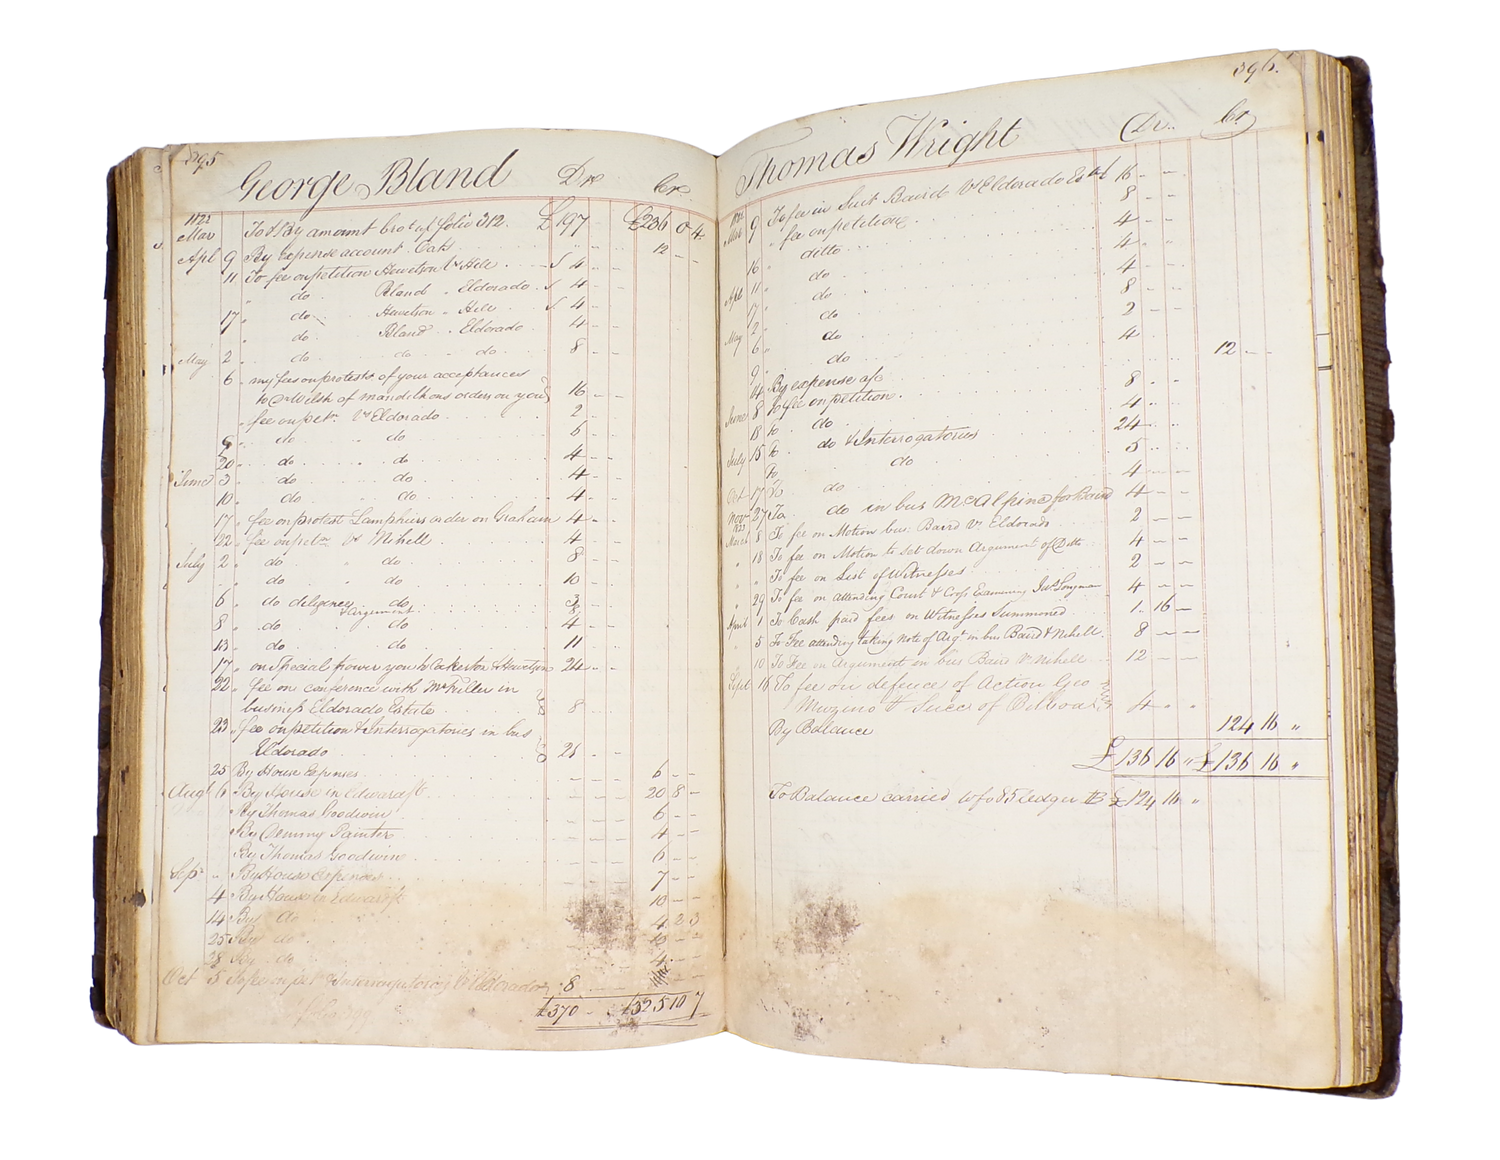 395
George Bland Dr Cr
Mar To & By amount bro.t of folio 312. £197 £236 0 4
Apl 9 By expense account Oats 12 - -
11 To fee on petition Hewetson Vs Hill 4 - -
" do Bland " Eldorado 4 - -
" do Hewetson " Hill 4 - -
17 " do Bland " Eldorado 4 - -
May 2 " do do " do 8 - -
6 " my fees on protests of your acceptances
to of orders on you 16 - -
" fee on petn Vs Eldorado 2 - -
9 " do do 6 - -
20 " do " do 4 - -
June 3 " do do 4 - -
10 " do do 4 - -
17 " fee on protest Lamphiers order on Graham 4 - -
22 " fee on petn Vs Nihell 4 - -
July 2 " do " do 8 - -
" do " do 10 - -
6 " do diligence do 3 - -
& Argument 8
8 " do do 4 - -
13 " do do 11 - -
17 " on Special power you to & Hewetson 24 - -
22 " fee on conference with Mr Fuller in
business Eldorado Estate 8 - -
23 " fee on petition & Interrogatories in bus
Eldorado 21 - -
25 By House Expenses 6 - -
Augt 6 By House in 20 8 -
By Thomas Goodwin 6 - -
By Deming Painter 4 - -
By Thomas Goodwin 6 - -
Sepr " By House Expenses 7 - -
4 By House in 10 - -
14 By do 4 2 3
25 By do 6 - -
28 By do 4 - -
Oct 5 To fee on pet & Interrogatories Vs Eldorado 8 - -
£370 - - £325 10 7
396.
Thomas Wright Dr.. Cr
Mar 9 To fee in Suit Baird Vs Eldorado Estd 16 - -
9 " fee on petition 8 - -
" ditto 4 - -
16 " do 4 " "
Apl 11 " do 4 - -
17 " do 8 " "
May 2 " do 2 - -
6 " do 4 - -
9
14 By expense a/c 12 - -
June 8 To fee on petition 8 " "
18 To do 4 " "
July 15 To do & Interrogatories 24 " "
To do 5 " "
Oct 17 To do 4 - -
Nov 27 To do in bus McAlpine for Baird 4 - -
1823
March 8 To fee on Motion bus: Baird Vs Eldorado 2 - -
" 18 To fee on Motion to set down Argument of Ditto 4 - -
" " To fee on List of Witnesses 2 - -
" 29 To fee on attending Court & Cross Examining Jas Longman 4 - -
April 1 To Cash paid fees on Witnesses Summoned 1 16 -
" 5 To Fee attending taking note of Argt in bus Baird & Nihell 8 - -
" 10 To Fee on Argument in bus Baird Vs Nihell 12 - -
Sept 16 To fee on defence of Action Geo
Munro & Succ of 4 " "
By Balance 124 16 "
£136 16 " £136 16 "
To Balance carried to fo 85 ledger B £124 16 "